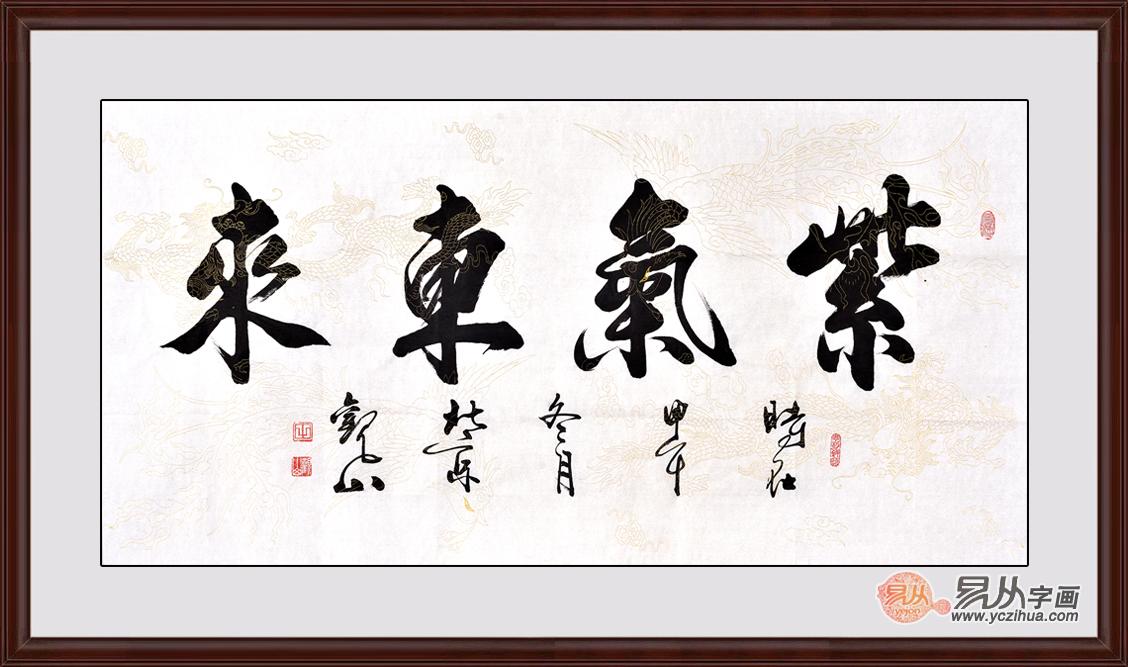 紫氣東來
時在
甲午
冬月
於京
觀山
易从
yejon
易从字画
www.yczihua.com